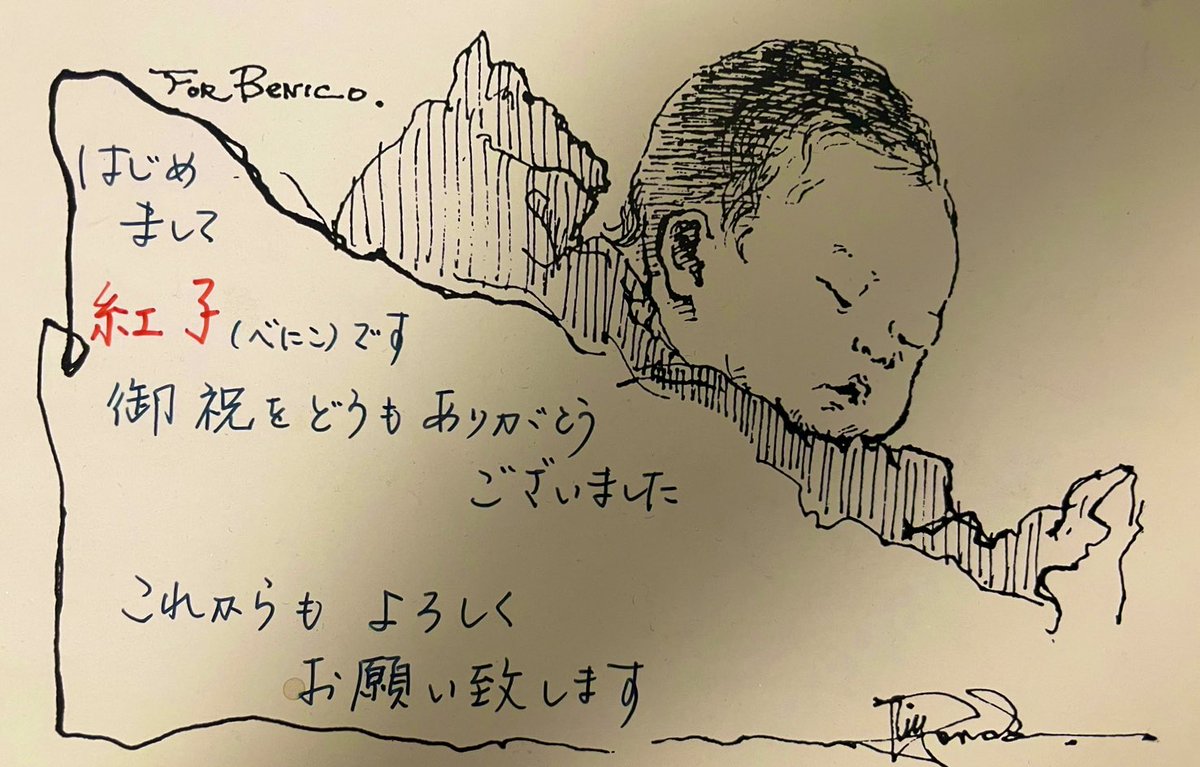 FOR BENICO.
はじめ
まして
紅子(べにこ)です
御祝をどうもありがとう
ございました
これからもよろしく
お願い致します